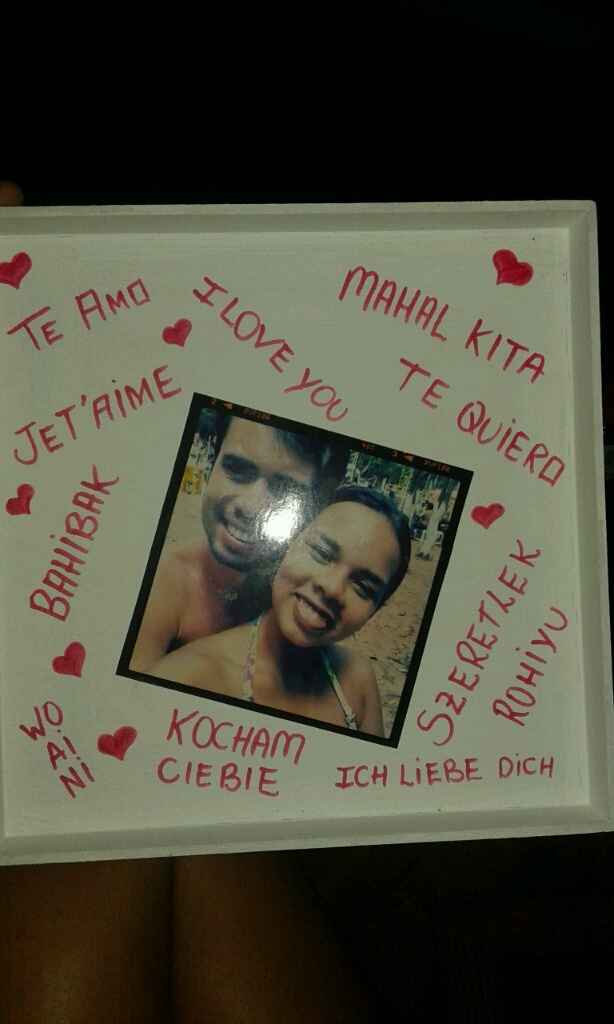 TE AMO
I LOVE YOU
MAHAL KITA
JET'AIME
TE QUIERO
BAHIBAK
SZERETLEK
ROHIYU
WO
AI
NI
KOCHAM
CIEBIE
ICH LIEBE DICH